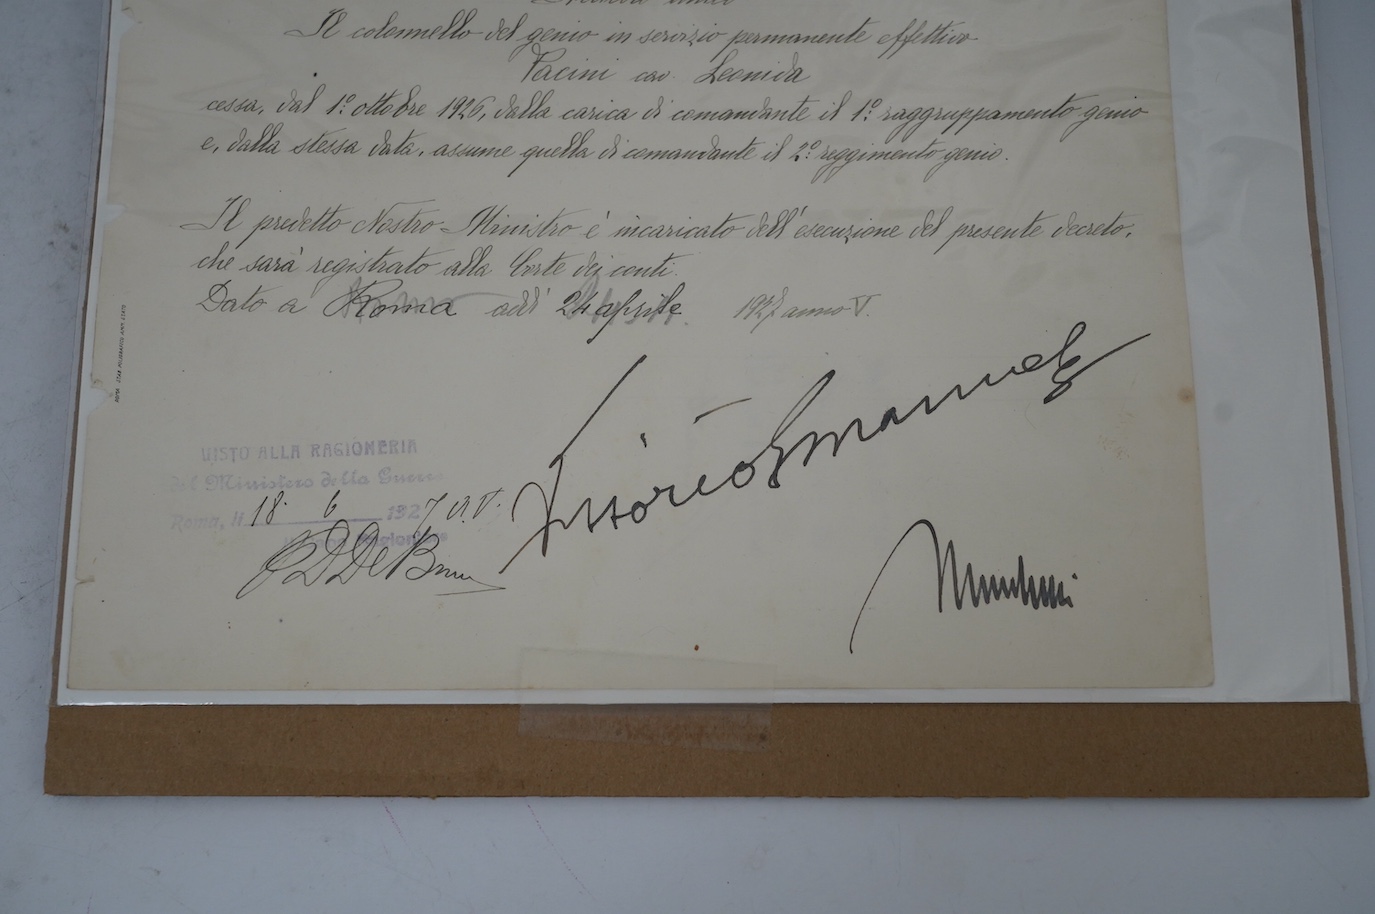 Il colonnello del genio in servizio permanente effettivo
Pacini cav. Leonida
cessa, dal 1º ottobre 1926, dalla carica di comandante il 1º raggruppamento genio
e, dalla stessa data, assume quella di comandante il 2º reggimento genio.
Il predetto Nostro Ministro è incaricato dell'esecuzione del presente decreto,
che sarà registrato alla Corte dei conti.
Dato a Roma addì 24 aprile 1927 anno V.
VISTO ALLA RAGIONERIA
del Ministero della Guerra
Roma, li 18. 6 1927 A.V.
Vittorio Emanuele
Mussolini